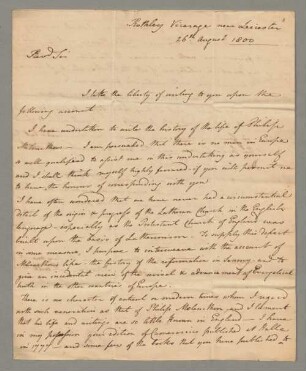 Rothley Vicarage near Leicester
26th August 1800
Revd Sir
I take the liberty of writing to you upon the
following account
I have undertaken to write the history of the life of Philip
Melancthon — I am persuaded that there is no man in Europe
so well qualified to assist me in this undertaking as yourself
and I shall think myself highly favored if you will permit me
to have the honour of corresponding with you
I have often wondered that we have never had a circumstantial
detail of the rise & progress of the Lutheran Church in the English
language especially as the Protestant Church of England was
built upon the basis of Lutheranism. To supply this defect
in some measure I purpose to interweave with the account of
Melancthons life the history of the reformation in Saxony and to
give an incidental view of the revival & advancement of Evangelical
truth in the other countries of Europe
There is no character of ancient or modern times whom I regard
with such veneration as that of Philip Melancthon and I lament
that his life and writings are so little known in England — I have
in my possession your edition of Camerarius published at Halle
in 1777 and some few of the books that you have published &